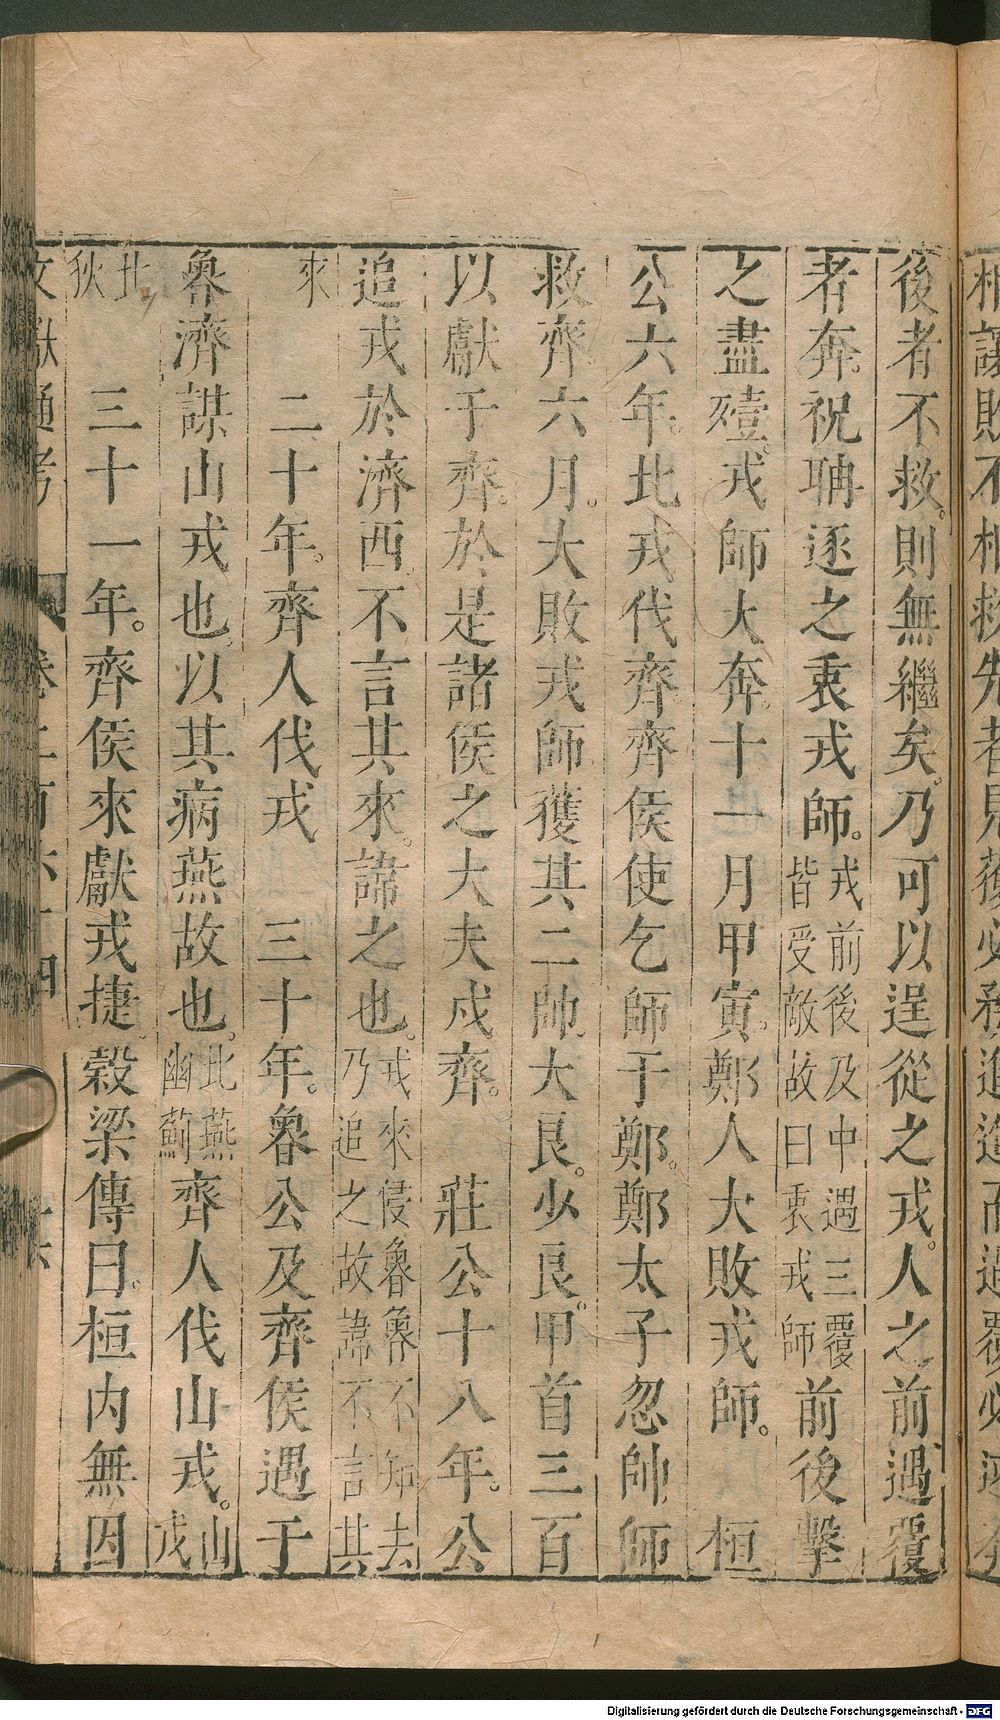 後者不救。則無繼矣。乃可以逞從之戎。人之前遇覆
者奔。祝聃逐之衷戎師。戎前後及中遇三覆皆受敵故曰衷戎師前後擊
之盡殪。戎師大奔。十一月甲寅。鄭人大敗戎師。 桓
公六年。北戎伐齊齊侯使乞師于鄭。鄭太子忽帥師
救齊六月。大敗戎師獲其二帥。大良。少良。甲首三百
以獻于齊。於是諸侯之大夫戍齊。 莊公十八年。公
追戎於濟西不言其來。諱之也。戎來侵魯魯不知去乃追之故諱不言其
來
二十年。齊人伐戎 三十年。魯公及齊侯遇于
魯濟謀山戎也。以其病燕故也。北燕幽薊齊人伐山戎。山戎
北狄
三十一年。齊侯來獻戎捷。穀梁傳曰。桓內無因
文獻通考